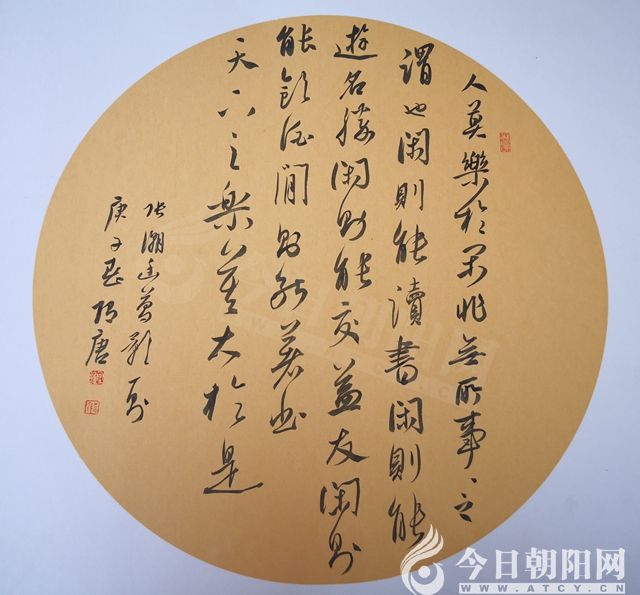 人莫樂於閑非無所事、之
謂也閑則能讀書閑則能
遊名勝閑則能交益友閑則
能飲酒閒則能著書
天下之樂莫大於是
张潮幽夢影一则
庚子春 唐
今日朝阳网
WWW.ATCY.CN